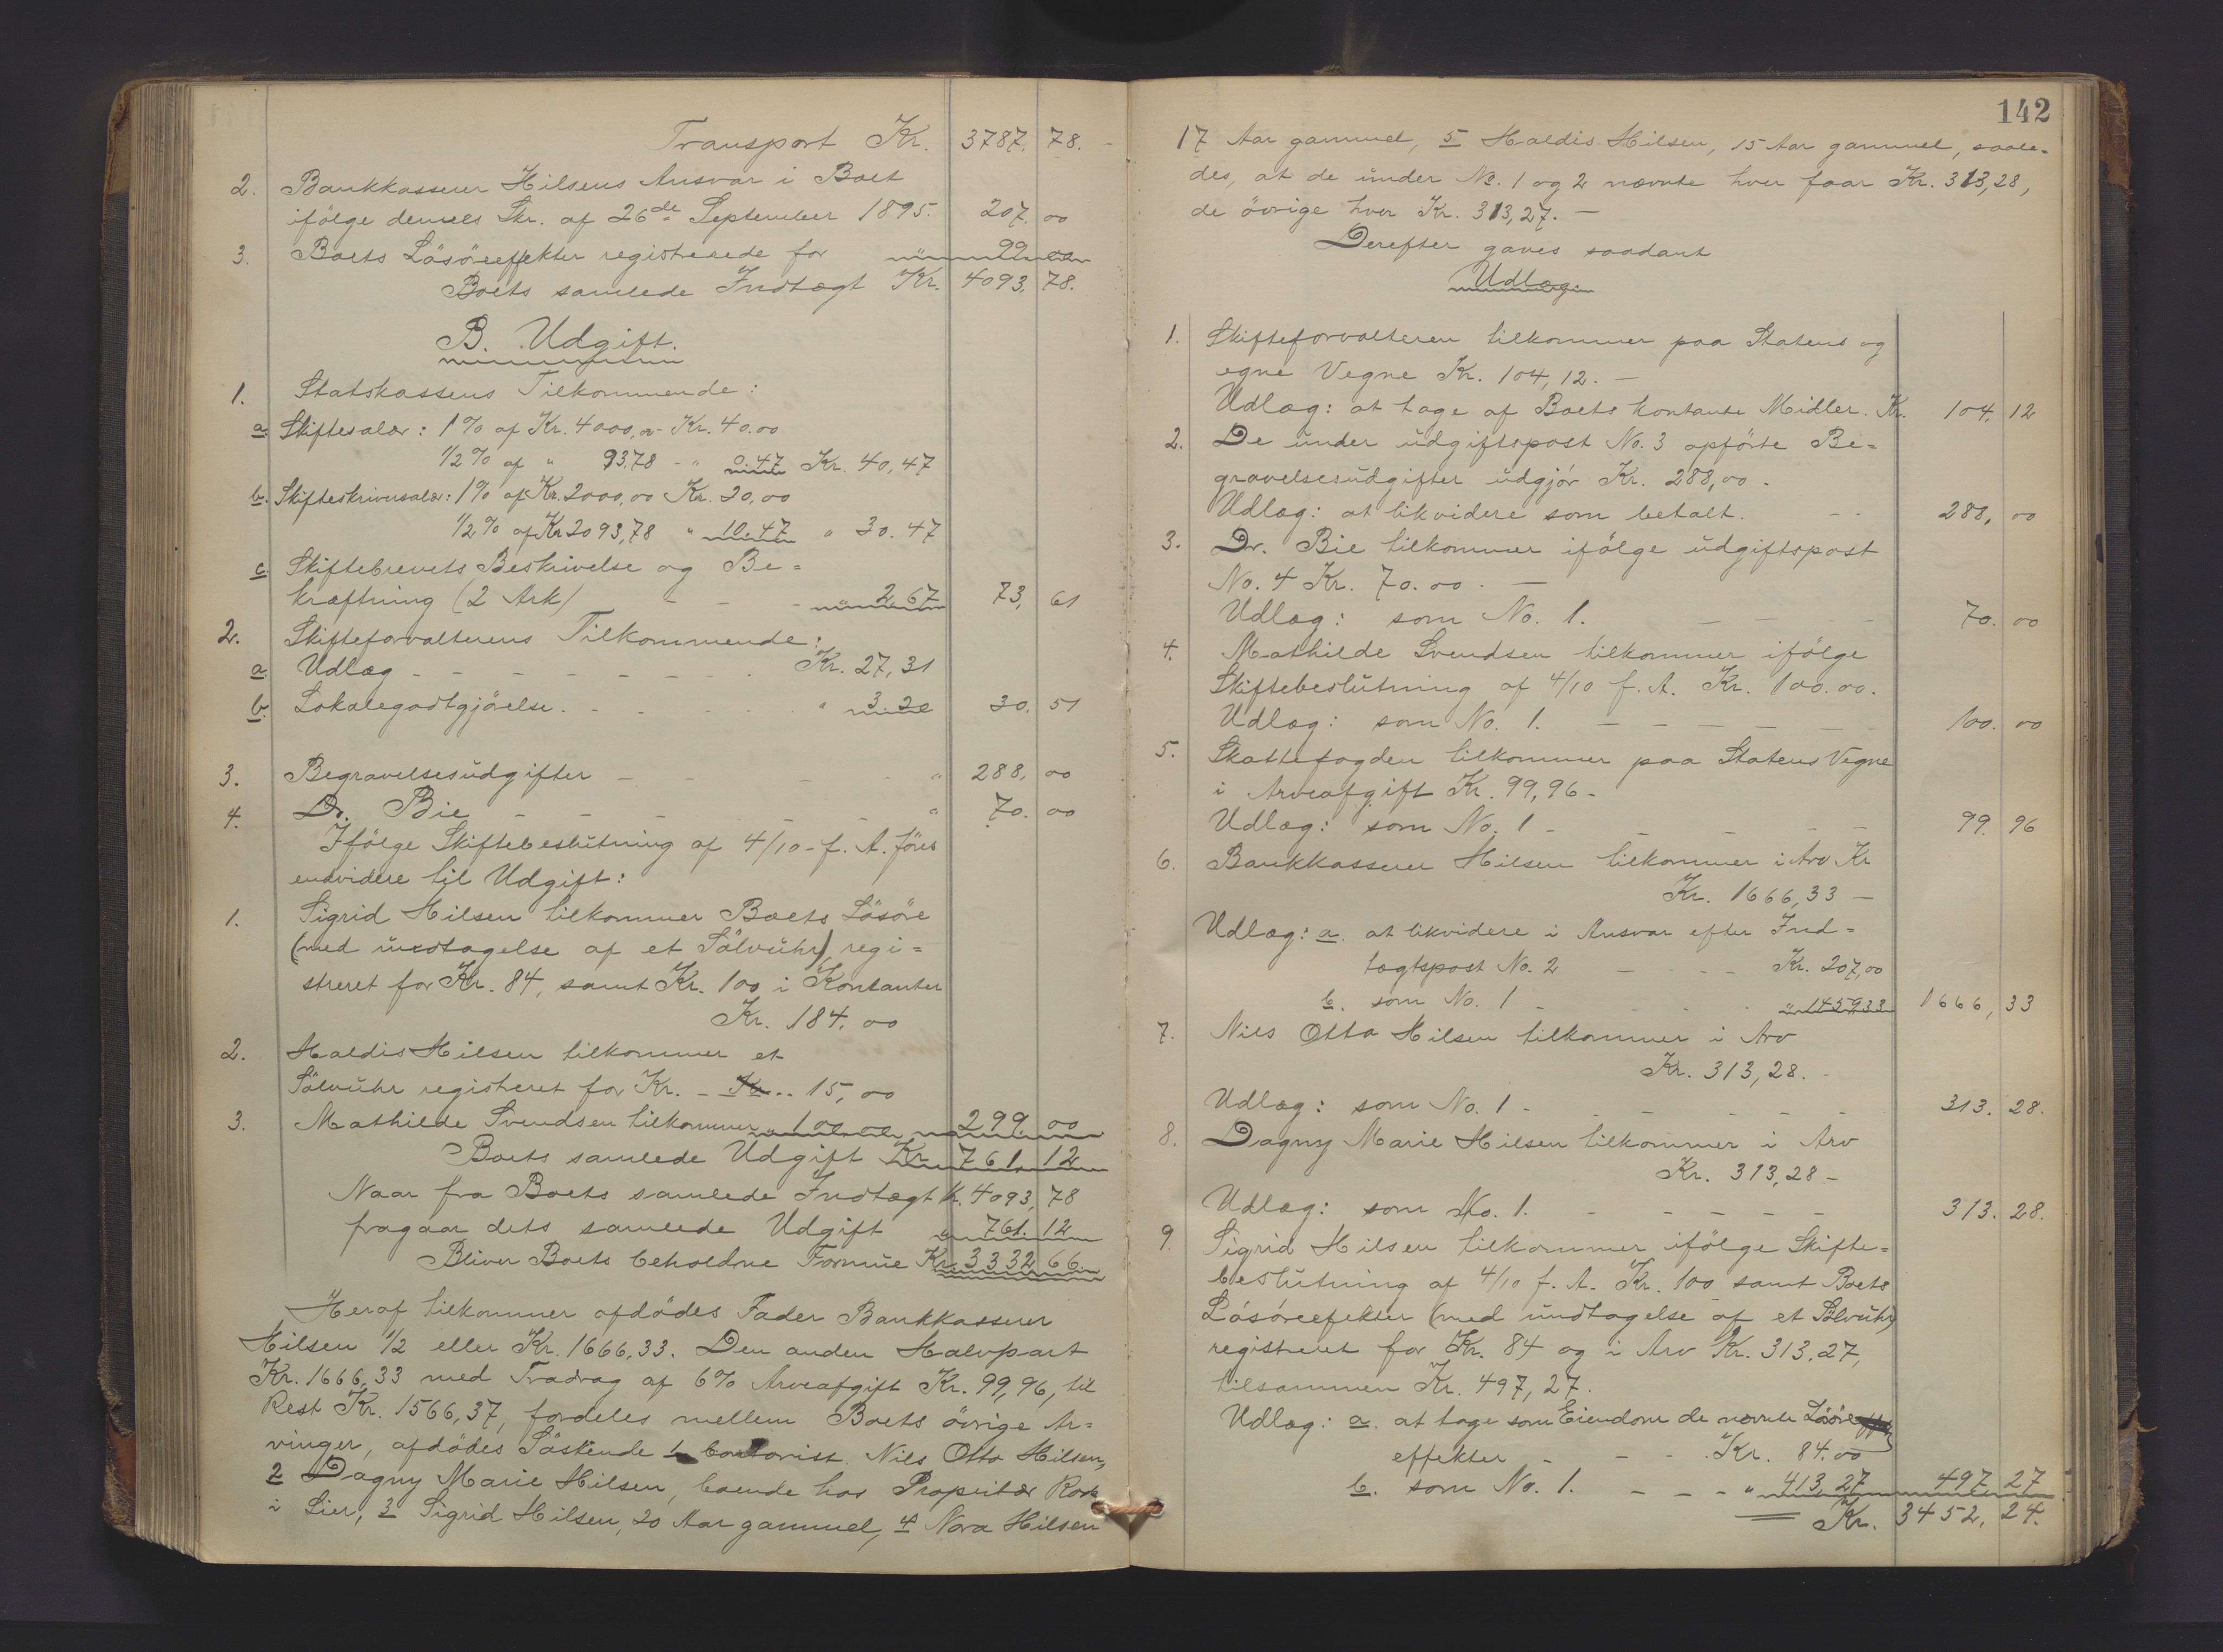 Transport Kr. 3787. 78.
2. Bankkasserer Hilsens Ansvar i Boet
ifölge dennes Skr. af 26de September 1895. 207. 00
3. Boets Lösöreeffekter registrerede for " 99 00
Boets samlede Indtægt Kr. 4093. 78.
B. Udgift.
1. Statskassens Tilkommende:
a. Skiftesalær: 1% af Kr. 4000,00 Kr. 40.00
1/2% af " 93.78 - " 0.47 Kr. 40,47
b. Skifteskriversalær: 1% af Kr. 2000,00 Kr. 20,00
1/2% af Kr 2093,78 " 10.47 " 30.47
c. Skiftebrevets Beskrivelse og Be=
kræftning (2 Ark) - - - " 2,67 73, 61
2. Skifteforvalterens Tilkommende:
a. Udlæg - - - - - - - Kr. 27,31
b. Lokalegodtgjörelse. - - - - - " 3.20 30. 51
3. Begravelsesudgifter - - - - " 288, 00
4. Dr. Bie - - - - - - " 70. 00
Ifölge Skiftebeslutning af 4/10 - f. A. föres
endvidere til Udgift:
1. Sigrid Hilsen tilkommer Boets Lösöre
(med undtagelse af et Sölvuhr), regi=
streret for Kr. 84, samt Kr. 100 i Kontanter
Kr. 184.00
2. Haldis Hilsen tilkommer et
Sölvuhr registreret for Kr. - Kr. .. 15,00
3. Mathilde Svendsen tilkommer " 100.00 299. 00
Boets samlede Udgift Kr. 761. 12
Naar fra Boets samlede Indtægt Kr. 4093, 78
fragaar dets samlede Udgift " 761. 12
Bliver Boets beholdne Formue Kr. 3332 66.
Heraf tilkommer afdödes Fader Bankkasserer
Hilsen 1/2 eller Kr. 1666,33. Den anden Halvpart
Kr. 1666,33 med Fradrag af 6% Arveafgift Kr. 99,96, til
Rest Kr. 1566,37, fordeles mellem Boets övrige Ar=
vinger, afdödes Söskende 1 Contorist Nils Otto Hilsen,
2 Dagny Marie Hilsen, boende hos Proprietær
i Lier, 3 Sigrid Hilsen, 20 Aar gammel, 4 Nora Hilsen
142
17 Aar gammel, 5 Haldis Hilsen, 15 Aar gammel, saale=
des, at de under No. 1 og 2 nævnte hver faar Kr. 313,28,
de övrige hver Kr. 313,27. -
Derefter gaves saadant
Udlæg
1. Skifteforvalteren tilkommer paa Statens og
egne Vegne Kr. 104,12. -
Udlæg: at tage af Boets kontante Midler. Kr. 104, 12
2. De under udgiftspost No. 3 opförte Be=
gravelsesudgifter udgjör Kr. 288,00.
Udlæg: at likvidere som betalt. - - 288, 00
3. Dr. Bie tilkommer ifölge udgiftspost
No. 4 Kr. 70.00. -
Udlæg: som No. 1. - - - - 70. 00
4. Mathilde Svendsen tilkommer ifölge
Skiftebeslutning af 4/10 f. A. Kr. 100.00.
Udlæg: som No. 1. - - - - - 100. 00
5. Skattefogden tilkommer paa Statens Vegne
i Arveafgift Kr. 99,96 -
Udlæg: som No. 1 - - - - - 99. 96
6. Bankkasserer Hilsen tilkommer i Arv Kr
Kr. 1666,33 -
Udlæg: a. at likvidere i Ansvar efter Ind=
tægtspost No. 2 - - - - Kr. 207,00
b. som No. 1 - - - - " 1459.33 1666, 33
7. Nils Otto Hilsen tilkommer i Arv
Kr. 313,28. -
Udlæg: som No. 1 - - - - - - 313. 28.
8. Dagny Marie Hilsen tilkommer i Arv
Kr. 313,28 -
Udlæg: som No. 1. - - - - - 313. 28.
9. Sigrid Hilsen tilkommer ifölge Skifte=
beslutning af 4/10 f. A. Kr. 100 samt Boets
Lösöreefekter (med undtagelse af et Sölvuhr)
registreret for Kr. 84 og i Arv Kr. 313.27,
tilsammen Kr. 497,27.
Udlæg: a. at tage som Eiendom de nævnte Lösöre
effekter - - - Kr. 84.00
b. som No. 1. - - - " 413,27 497. 27
Kr. 3452, 24.